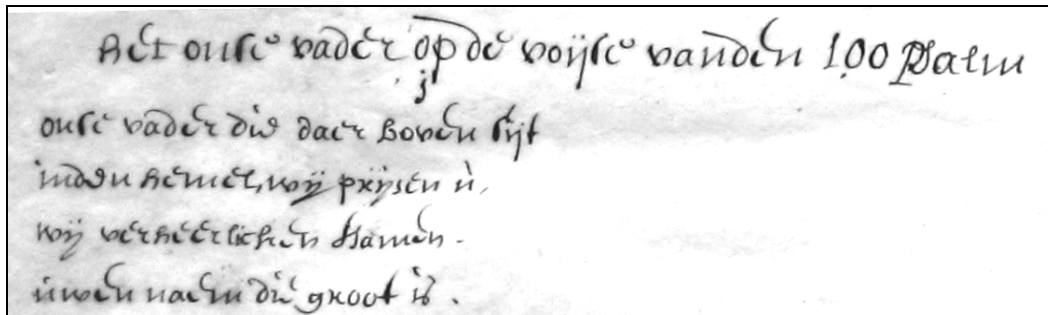 het onse vader op de voijse vanden 100 Psalm
j
onse vader die daer boven sijt
inden hemel, wij prijsen u,
wij verheerlichen t'samen.
uwen naem die groot is.